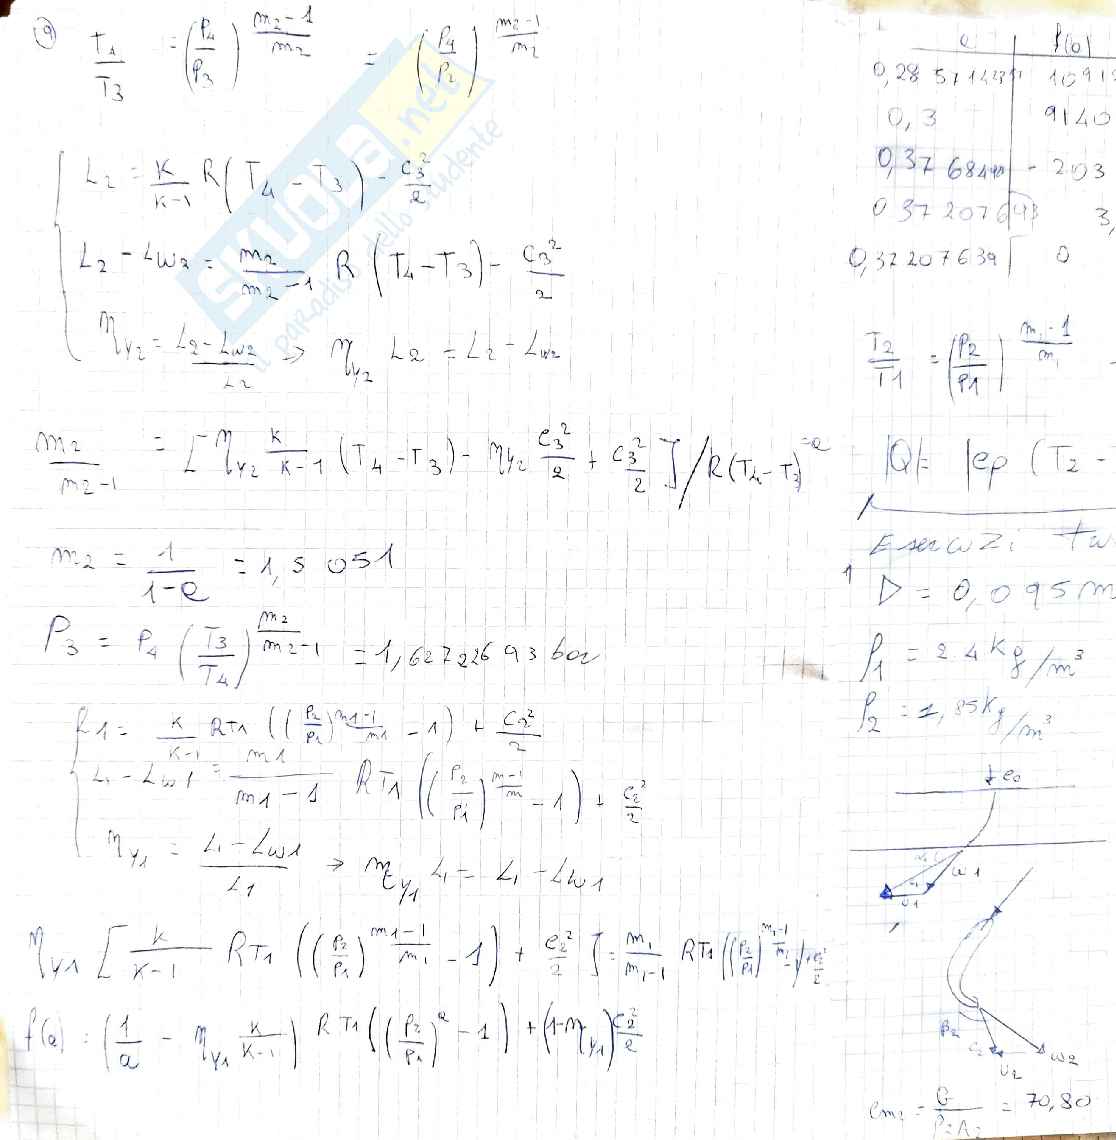 9) T4/T3 = (P4/P3)^((m2-1)/m2) = (P4/P2)^((m2-1)/m2)
L2 = K/(K-1) R(T4 - T3) - c3²/2
L2 - Lw2 = m2/(m2-1) R (T4-T3) - c3²/2
ηy2 = (L2 - Lw2)/L2 → ηy2 L2 = L2 - Lw2
m2/(m2-1) = [ηy2 K/(K-1) (T4-T3) - ηy2 c3²/2 + c3²/2] / R(T4-T3) = a
m2 = 1/(1-a) = 1,5051
P3 = P4 (T3/T4)^(m2/(m2-1)) = 1,62722693 bar
L1 = K/(K-1) RT1 ((P2/P1)^((m1-1)/m1) - 1) + c2²/2
L1 - Lw1 = m1/(m1-1) RT1 ((P2/P1)^((m-1)/m) - 1) + c2²/2
ηy1 = (L1 - Lw1)/L1 → ηy1 L1 = L1 - Lw1
ηy1 [K/(K-1) RT1 ((P2/P1)^((m1-1)/m1) - 1) + c2²/2] = m1/(m1-1) RT1 ((P2/P1)^((m1-1)/m1) - 1) + c2²/2
f(a) = (1/a - ηy1 K/(K-1)) RT1 ((P2/P1)^a - 1) + (1-ηy1) c2²/2
SKUOLA.net
il paradiso dello studente
a f(a)
0,3 9140
- 203
0,37207639 0
T2/T1 = (P2/P1)^((m1-1)/m1)
|Q| = |cp (T2 -
Esercizi tu
1 D = 0,095 m
ρ1 = 2.4 Kg/m³
ρ2 = 1,85 Kg/m³
c0
w1
u1
β2
c2
u2
w2
cm2 = G/(ρ2A2) = 70,80